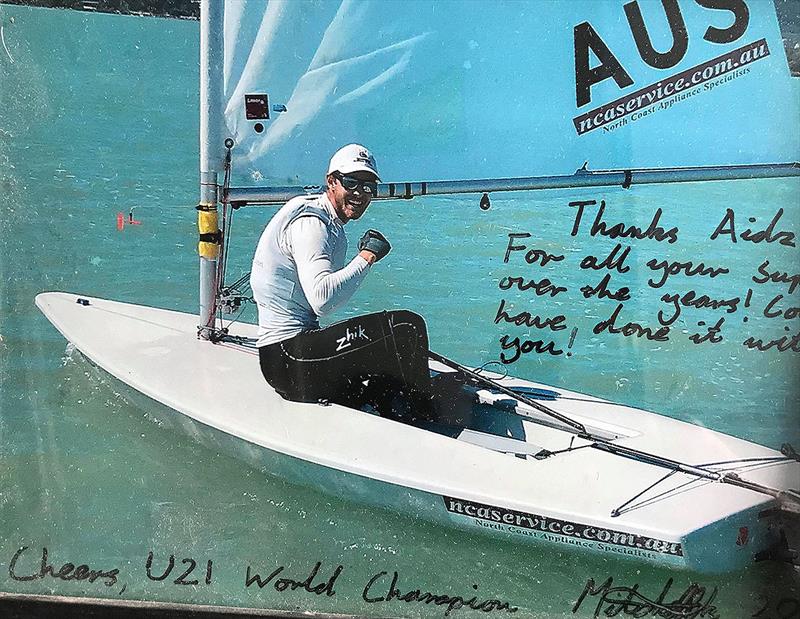 AUS
ncaservice.com.au
North Coast Appliance Specialists
Laser
Thanks Aidz
For all your
over the years!
have done it
you!
zhik
ncaservice.com.au
North Coast Appliance Specialists
Cheers, U21 World Champion